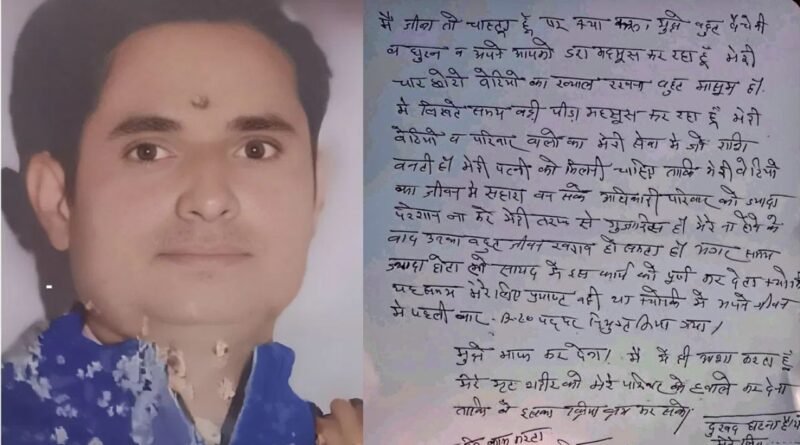 मैं जीना तो चाहता हूँ पर क्या करू मुझे बहुत बैचेनी
व घुटन व अपने आपको डरा महसूस कर रहा हूँ मेरी
चार छोटी बेटियो का ख्याल रखना बहुत मासुम हो.
मे लिखते समय बड़ी पीड़ा महसुस कर रहा हूँ मेरी
बेटियो व परिवार वालो का मेरी सेवा मे जो राशि
बनती हो मेरी पत्नी को मिलनी चाहिए ताकि मेरी बेटियो
का जीवन मे सहारा बन सके अधिकारी परिवार को ज्यादा
परेशान ना करे मेरी तरफ से गुजारिस हो मेरे ना होने के
बाद उनका बहुत जीवन खराब हो सकता हो मगर समय
ज्यादा होता तो सायद मे इस कार्य को पुर्ण कर देता क्योकि
यह समय मेरे लिए प्रयाप्त नही था क्योकि मे अपने जीवन
मे पहली बार पद पर नियुक्त किया गया।
मुझे माफ कर देना। मैं ये ही आशा करता हूँ
मेरे मृत शरीर को मेरे परिवार के हवाले कर देना
ताकि वे इसका क्रिया कर सके।
दुखद घटना है
करता
मेरे